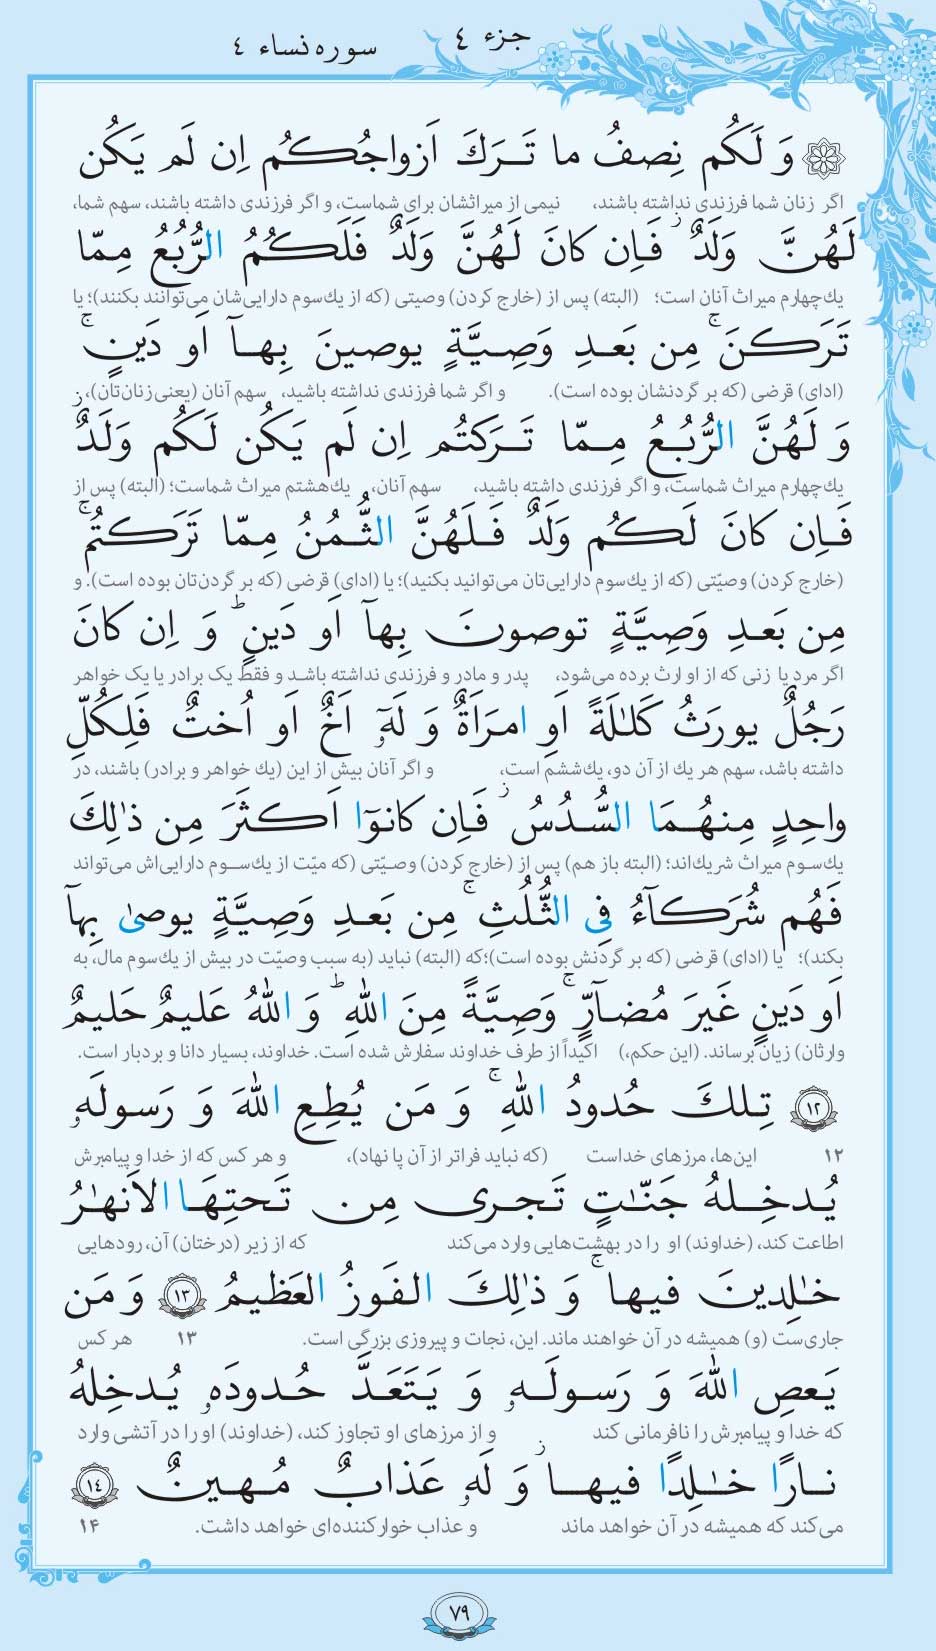 جزء ٤
سوره نساء ٤
وَ لَكُم نِصفُ ما تَـرَكَ اَزواجُـكُـم اِن لَم يَكُن
اگر زنان شما فرزندی نداشته باشند، نیمی از میراثشان برای شماست، و اگر فرزندی داشته باشند، سهم شما،
لَهُـنَّ وَلَدٌ ۚ فَـاِن كانَ لَهُنَّ وَلَدٌ فَلَكُـمُ الرُّبُعُ مِمّا
یک‌چهارم میراث آنان است؛ (البته) پس از (خارج کردن) وصیتی (که از یک‌سوم دارایی‌شان می‌توانند بکنند)؛ یا
تَرَكـنَ ۚ مِن بَعـدِ وَصِـيَّةٍ يوصينَ بِهـآ اَو دَينٍ ۚ
(ادای) قرضی (که بر گردنشان بوده است). و اگر شما فرزندی نداشته باشید، سهم آنان (یعنی زنان‌تان)،
وَ لَهُنَّ الرُّبُـعُ مِـمّا تَـرَكتُم اِن لَم يَكُن لَكُم وَلَدٌ ۚ
یک‌چهارم میراث شماست، و اگر فرزندی داشته باشید، سهم آنان، یک‌هشتم میراث شماست؛ (البته) پس از
فَـاِن كانَ لَـكُم وَلَدٌ فَـلَهُنَّ الثُّـمُنُ مِمّا تَرَكـتُم ۚ
(خارج کردن) وصیّتی (که از یک‌سوم دارایی‌تان می‌توانید بکنید)؛ یا (ادای) قرضی (که بر گردن‌تان بوده است). و
مِن بَعـدِ وَصِيَّةٍ توصونَ بِهآ اَو دَينٍ ؕ وَ اِن كانَ
اگر مرد یا زنی که از او ارث برده می‌شود، پدر و مادر و فرزندی نداشته باشد و فقط یک برادر یا یک خواهر
رَجُلٌ يورَثُ كَلـٰلَةً اَوِ امرَاَةٌ وَ لَهٓ اَخٌ اَو اُختٌ فَلِكُلِّ
داشته باشد، سهم هر یک از آن دو، یک‌ششم است، و اگر آنان بیش از این (یک خواهر و برادر) باشند، در
واحِدٍ مِنهُـمَا السُّدُسُ ۚ فَـاِن كانوٓا اَكـثَرَ مِن ذٰلِكَ
یک‌سوم میراث شریک‌اند؛ (البته باز هم) پس از (خارج کردن) وصیّتی (که میّت از یک‌سـوم دارایی‌اش می‌تواند
فَهُم شُرَكـآءُ فِى الثُّلُثِ ۚ مِن بَعـدِ وَصِيَّةٍ يوصىٰ بِهآ
بکند)؛ یا (ادای) قرضی (که بر گردنش بوده است)؛که (البته) نباید (به سبب وصیّت در بیش از یک‌سوم مال، به
اَو دَينٍ غَيرَ مُضـآرٍّ ۚ وَصِيَّةً مِنَ اللّٰهِ ؕ وَ اللّٰهُ عَليمٌ حَليمٌ
وارثان) زیان برساند. (این حکم،) اکیداً از طرف خداوند سفارش شده است. خداوند، بسیار دانا و بردبار است.
١٢ تِـلكَ حُدودُ اللّٰهِ ۚ وَ مَن يُطِعِ اللّٰهَ وَ رَسولَهٗ
۱۲ این‌ها، مرزهای خداست (که نباید فراتر از آن پا نهاد)، و هر کس که از خدا و پیامبرش
يُـدخِـلهُ جَنّـٰتٍ تَـجـرى مِن تَـحتِهَـا الاَنهـٰرُ
اطاعت کند، (خداوند) او را در بهشت‌هایی وارد می‌کند که از زیر (درختان) آن، رودهایی
خـٰلِدينَ فيهـا ۚ وَ ذٰلِكَ الـفَوزُ العَظيمُ ١٣ وَ مَن
جاری‌ست (و) همیشه در آن خواهند ماند. این، نجات و پیروزی بزرگی است. ۱۳ هر کس
يَـعصِ اللّٰهَ وَ رَسـولَـهٗ وَ يَـتَعَدَّ حُـدودَهٗ يُـدخِلهُ
که خدا و پیامبرش را نافرمانی کند و از مرزهای او تجاوز کند، (خداوند) او را در آتشی وارد
نـارًا خـٰلِدًا فيهـا ۖ وَ لَهٗ عَذابٌ مُـهـينٌ ١٤
می‌کند که همیشه در آن خواهد ماند و عذاب خوارکننده‌ای خواهد داشت. ۱۴
٧٩